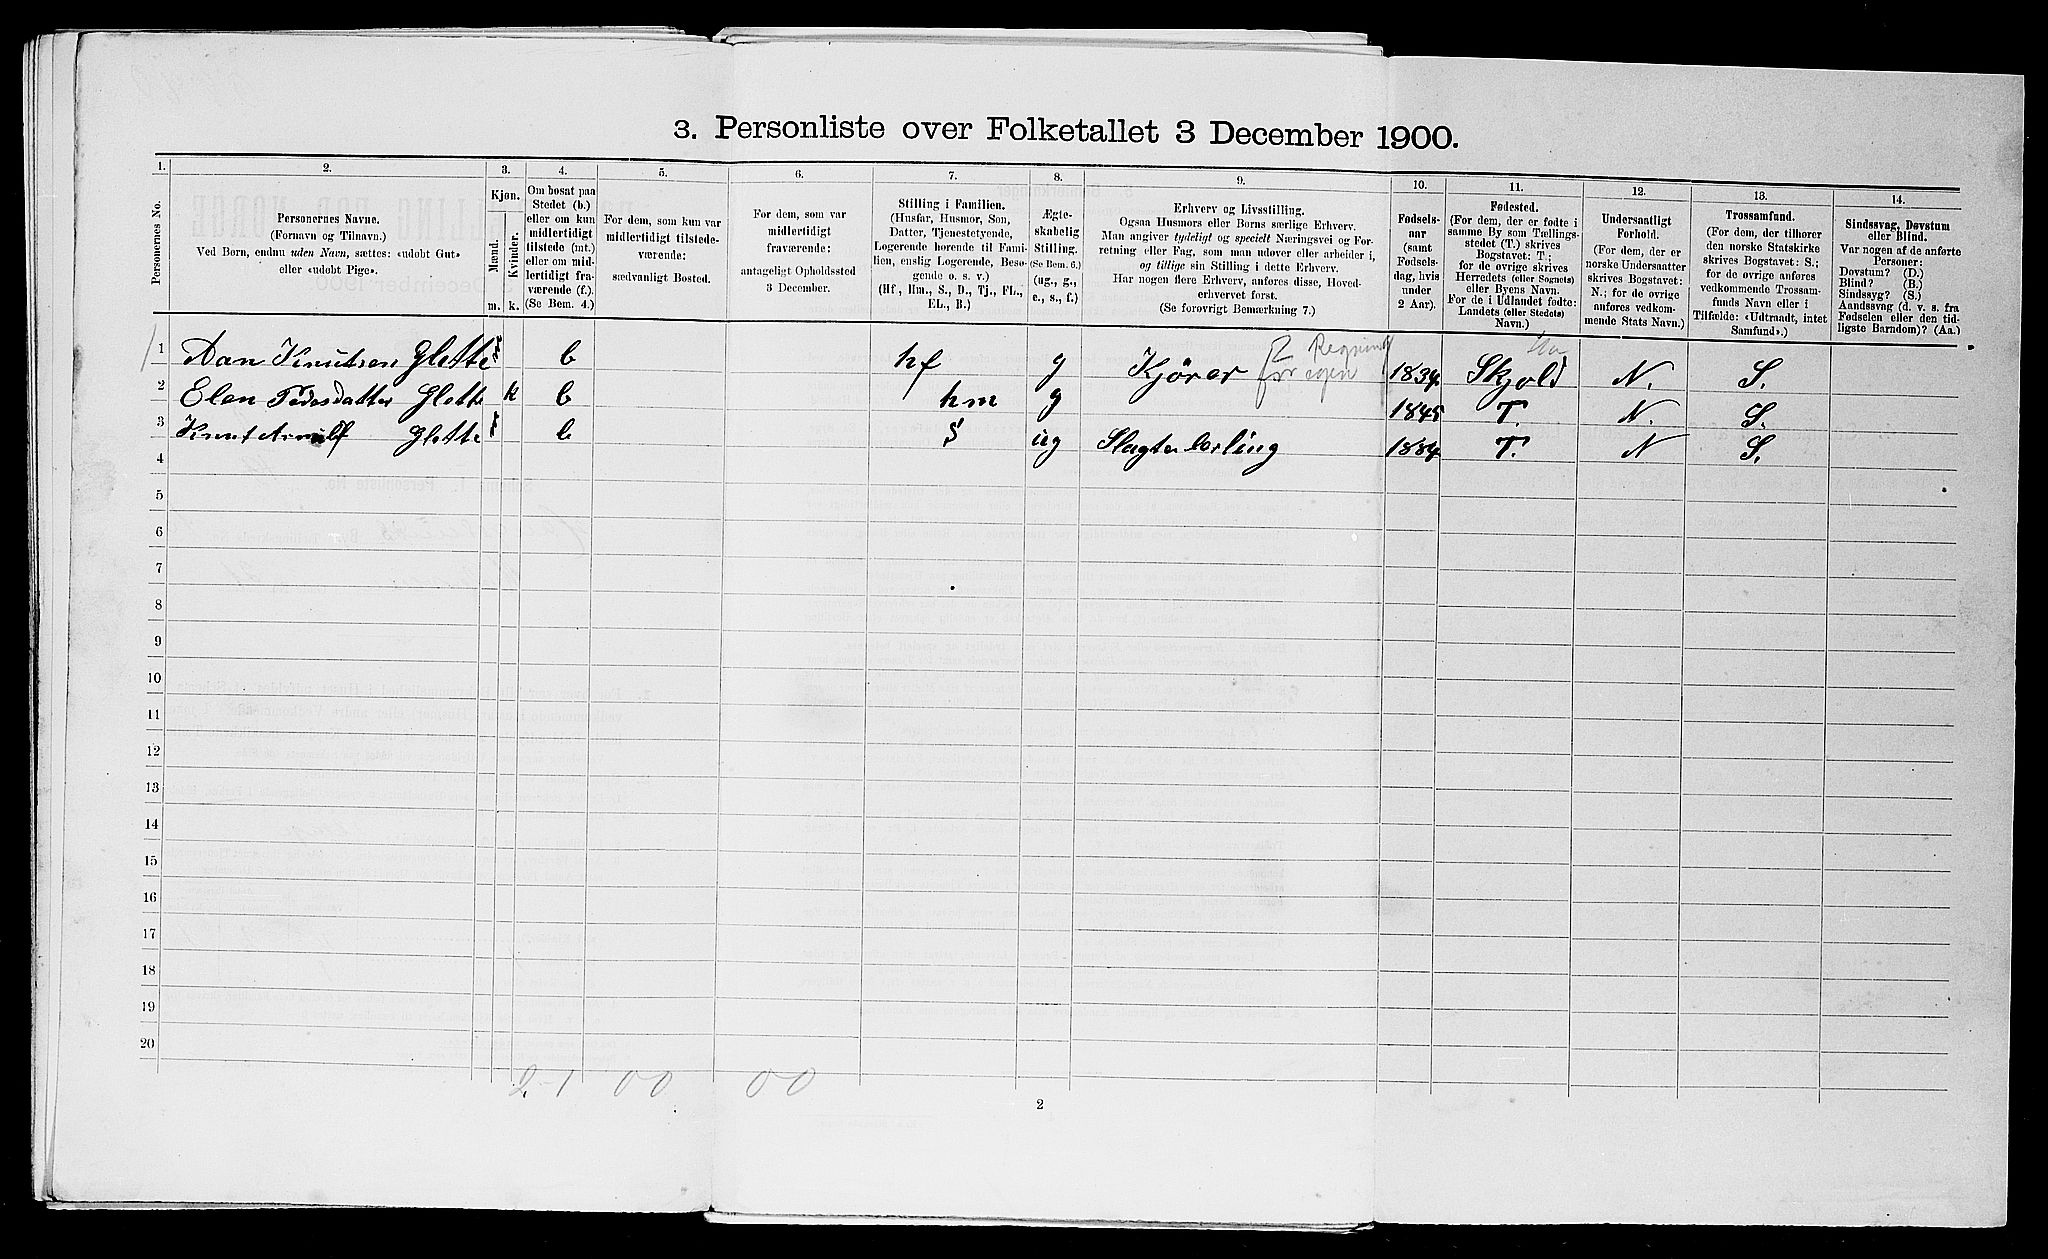 3. Personliste over Folketallet 3 December 1900.
1. 2. 3. 4. 5. 6. 7. 8. 9. 10. 11. 12. 13. 14.
Personernes No.
Personernes Navne.
(Fornavn og Tilnavn.)
Ved Børn, endnu uden Navn, sættes: «udøbt Gut»
eller «udøbt Pige».
Kjøn.
Mænd.
Kvinder.
m. k.
Om bosat paa
Stedet (b.)
eller om kun
midlertidigt
tilstede (mt.)
eller om mid-
lertidigt fra-
værende (f.).
(Se Bem. 4.)
For dem, som kun var
midlertidigt tilstede-
værende:
sædvanligt Bosted.
For dem, som var
midlertidigt
fraværende:
antageligt Opholdssted
3 December.
Stilling i Familien.
(Husfar, Husmor, Søn,
Datter, Tjenestetyende,
Logerende hørende til Fami-
lien, enslig Logerende, Besø-
gende o. s. v.)
(Hf., Hm., S., D., Tj., FL.,
EL., B.)
Ægte-
skabelig
Stilling.
(Se Bem. 6.)
(ug., g.,
e., s., f.)
Erhverv og Livsstilling.
Ogsaa Husmors eller Børns særlige Erhverv.
Man angiver tydeligt og specielt Næringsvei og For-
retning eller Fag, som man udøver eller arbeider i,
og tillige sin Stilling i dette Erhverv.
Har nogen flere Erhverv, anføres disse, Hoved-
erhvervet først.
(Se forøvrigt Bemærkning 7.)
Fødsels-
aar
(samt
Fødsels-
dag, hvis
under
2 Aar).
Fødested.
(For dem, der er fødte i
samme By som Tællings-
stedet (T.) skrives
Bogstavet: T.;
for de øvrige skrives
Herredets (eller Sognets)
eller Byens Navn.
For de i Udlandet fødte:
Landets (eller Stedets)
Navn.)
Undersaatligt
Forhold.
(For dem, der er
norske Undersaatter
skrives Bogstavet:
N.; for de øvrige
anføres vedkom-
mende Stats Navn.)
Trossamfund.
(For dem, der tilhører
den norske Statskirke
skrives Bogstavet: S.;
for de øvrige anføres
vedkommende Trossam-
funds Navn eller i
Tilfælde: «Udtraadt, intet
Samfund».)
Sindssvag, Døvstum
eller Blind.
Var nogen af de anførte
Personer:
Døvstum? (D.)
Blind? (B.)
Sindssyg? (S.)
Aandssvag (d. v. s. fra
Fødselen eller den tid-
ligste Barndom)? (Aa.)
1 Aan Knutsen Glette m b hf g Kjører for egen Regning 1834 Skjold N. S.
2 Elen Pedersdatter Glette k b hm g 1845 T. N. S.
3 Knut Arnulf Glette m b S ug Slagterlærling 1884 T. N S.
4
5
6
7
8
9
10
11
12
13
14
15
16
17
18
19
20
2-1 00 00
2